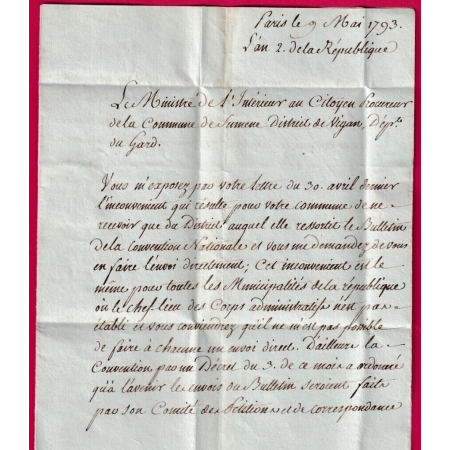 Paris le 9 Mai 1793.
L'an 2. de la République
Le Ministre de l'Intérieur au Citoyen Procureur
de la Commune de Sumene District de Vigan, Dép.t
du Gard.
Vous m'exposez par votre lettre du 30. avril dernier
l'inconvenient qui résulte pour votre commune de ne
recevoir que du District auquel elle ressortit le Bulletin
de la Convention Nationale et vous me demandez de vous
en faire l'envoi directement; Cet inconvenient est le
même pour toutes les Municipalités de la république
où le chef-lieu des Corps administratifs n'est pas
établi et vous conviendrez qu'il ne m'est pas possible
de faire à chacune un envoi direct. D'ailleurs la
Convention par un Décret du 3. de ce mois a ordonné
qu'à l'avenir les envois du Bulletin seroient faits
par son Comité des Pétitions et de correspondance